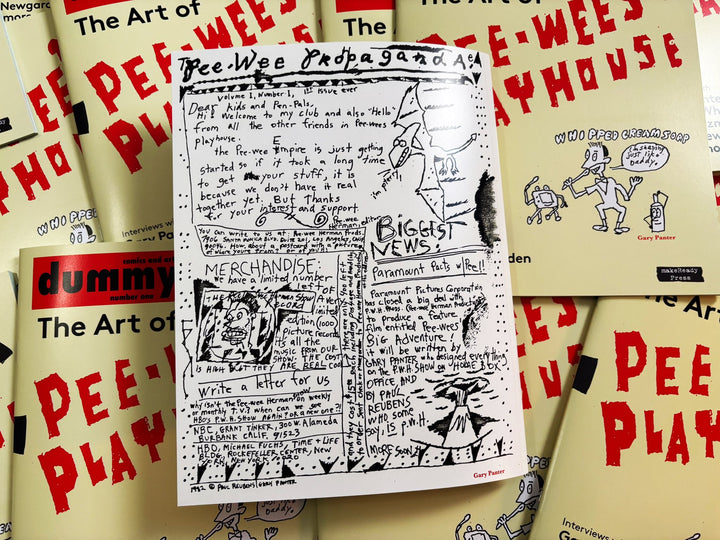 The Pee-Wee Propaganda!
Volume 1, Number 1, 1st issue ever
Dear kids and Pen-Pals,
Hi! Welcome to my club and also "Hello"
from all the other friends in Pee-wee's
playhouse.
the Pee-wee Empire is just getting
started so if it took a long time
to get your stuff, it is
because we don't have it real
together yet. But Thanks
for your interest and support.
Pee-wee
Herman, editor
You can write to us at: Pee-wee Herman Prods.
7906 Santa Monica Blvd. Suite 201, Los Angeles, Calif
90046. How about a postcard with a picture
of where you're from?
I'm pterri!
BIGGEST
NEWS!
Paramount Pacts w/ Pee!!
Paramount Pictures Corporation
has closed a big deal with
P.W.H. Prods. (Pee-wee Herman Productions)
to produce a feature
film entitled Pee-wee's
Big Adventure!
it will be written by
GARY PANTER who designed everything
on the P.W.H. SHOW on "HOME BOX
OFFICE, AND
BY PAUL
REUBENS
WHO SOME
SAY, IS P.W.H
MORE SOON
MERCHANDISE!
we have a limited number
left of
a very
limited
edition (1000)
picture record
its all the
music from OUR
SHOW. THE COST
IS HIGH BUT THEY ARE REAL COOL
Write a letter for us
why isn't the Pee-wee Herman Show on weekly
or monthly T.V.? when can we see
HBO's P.W.H. SHOW AGAIN? OR a new one?!
NBC, GRANT TINKER, 3000 W. Alameda
BURBANK CALIF. 91523
HBO, MICHAEL FUCHS, TIME & LIFE
BLDG. ROCKEFELLER CENTER, NEW
YORK, NEW YORK 10020
1982 © PAUL REUBENS/GARY PANTER
Gary Panter
Newgard
more
The Art of
PEE-WEE'S
PLAYHOUSE
The Art of
PEE-WEE'S
PLAYHOUSE
WHIPPED CREAM SOAP
I'm shaving
just like
Daddy.
Gary Panter
makeReady
Press
dummy
comics and art
number one
The Art of
PEE
PLAY
WHIPPED
Interviews w